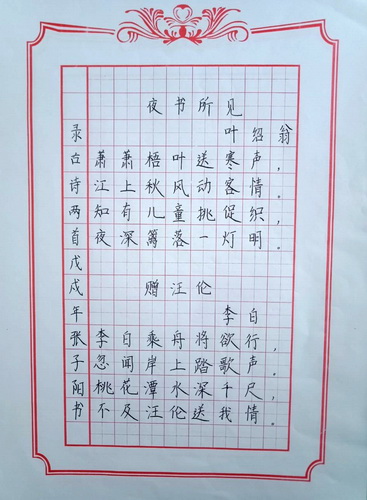 夜书所见
叶绍翁
萧萧梧叶送寒声，
江上秋风动客情。
知有儿童挑促织，
夜深篱落一灯明。
赠汪伦
李白
李白乘舟将欲行，
忽闻岸上踏歌声。
桃花潭水深千尺，
不及汪伦送我情。
录古诗两首戊戌年张子阳书